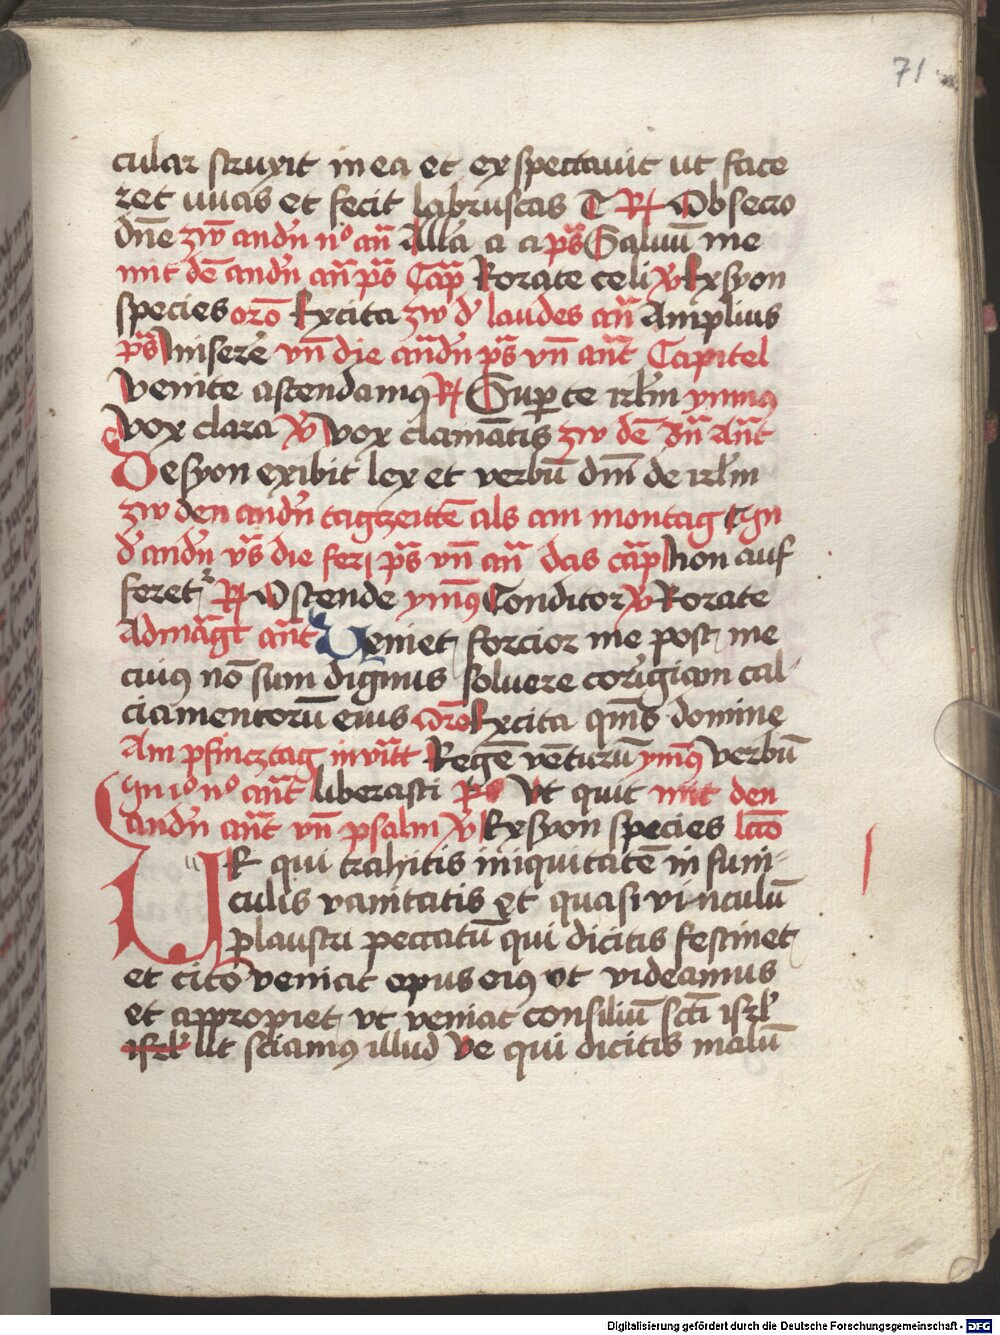 71
cular struxit in ea et exspectauit ut face
ret uuas et fecit labruscas C R Obsecro
dn̄e zw̄ andn̄ n° an̄ All̄a a a ps̄ Saluū me
mit dē andn̄ an̄ ps̄ Cap̄ Rorate celi V Exsyon
species orō Excita zw d' laudes an̄ Amplius
ps̄ miserē vn̄ die andn̄ ps̄ vn̄ ant̄ Capitel
Venite ascendamꝰ R Suꝑ te irlm̄ ymnꝰ
Vox clara V Vox clamātis zw dē bn̄ ant̄
De syon exibit lex et verbū dm̄ de irlm̄
zw den andn̄ tagzeittē als am montag C Jn
d' andn̄ vs̄ die feri ps̄ vn̄ an̄ das cap̄ Non auf
feret R Ostende ymꝰ Conditor V Rorate
Ad magt̄ ant̄ Veniet forcior me post me
cuiꝰ nō sum dignus soluere corrigiam cal
ciamentorū eius Orō Excita qm̄s domine
Am pfincztag inuitt Regē vēturū ymꝰ Verbū
Jn i° n° ant̄ liberasti ps Vt quit mit den
andn̄ ant̄ vn̄ psalm V Exsyon species lcō
UE qui trahitis iniquitatē in funi
culis vanitatis et quasi vinculū
plaustri peccatū qui dicitis festinet
et cito veniat opus eiꝰ vt videamus
et appropiet vt veniat consiliū scti isrl'
isrl' llt sciamꝰ illud Ve qui dicitis malū
Digitalisierung gefördert durch die Deutsche Forschungsgemeinschaft - DFG